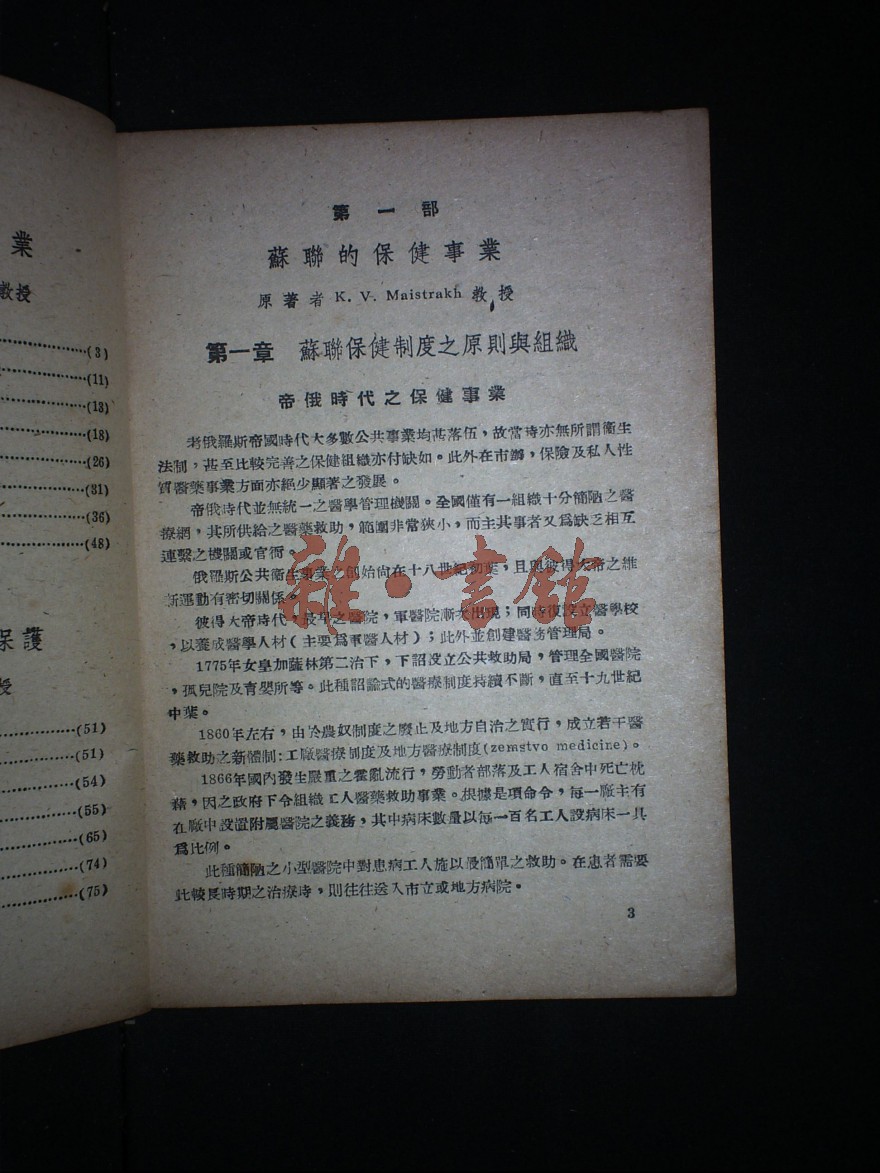 業
教授
(3)
(11)
(13)
(18)
(26)
(31)
(36)
(48)
保護
授
(51)
(51)
(54)
(55)
(65)
(74)
(75)
第一部
蘇聯的保健事業
原著者 K. V. Maistrakh 教授
第一章 蘇聯保健制度之原則與組織
帝俄時代之保健事業
老俄羅斯帝國時代大多數公共事業均甚落伍，故當時亦無所謂衞生
法制，甚至比較完善之保健組織亦付缺如。此外在市辦，保險及私人性
質醫藥事業方面亦絕少顯著之發展。
帝俄時代並無統一之醫學管理機關。全國僅有一組織十分簡陋之醫
療網，其所供給之醫藥救助，範圍非常狹小，而主其事者又爲缺乏相互
連繫之機關或官衙。
俄羅斯公共衞生事業之創始尚在十八世紀初葉，且與彼得大帝之維
新運動有密切關係。
彼得大帝時代，最早之醫院，軍醫院漸次出現；同時復設立醫學校
，以養成醫學人材（主要爲軍醫人材）；此外並創建醫務管理局。
1775年女皇加薩林第二治下，下詔設立公共救助局，管理全國醫院
，孤兒院及育嬰所等。此種詔諭式的醫療制度持續不斷，直至十九世紀
中葉。
1860年左右，由於農奴制度之廢止及地方自治之實行，成立若干醫
藥救助之新體制：工廠醫療制度及地方醫療制度(zemstvo medicine)。
1866年國內發生嚴重之霍亂流行，勞動者部落及工人宿舍中死亡枕
藉，因之政府下令組織工人醫藥救助事業。根據是項命令，每一廠主有
在廠中設置附屬醫院之義務，其中病床數量以每一百名工人設病床一具
爲比例。
此種簡陋之小型醫院中對患病工人施以僅簡單之救助。在患者需要
比較長時期之治療時，則往往送入市立或地方病院。
3
雜·書館